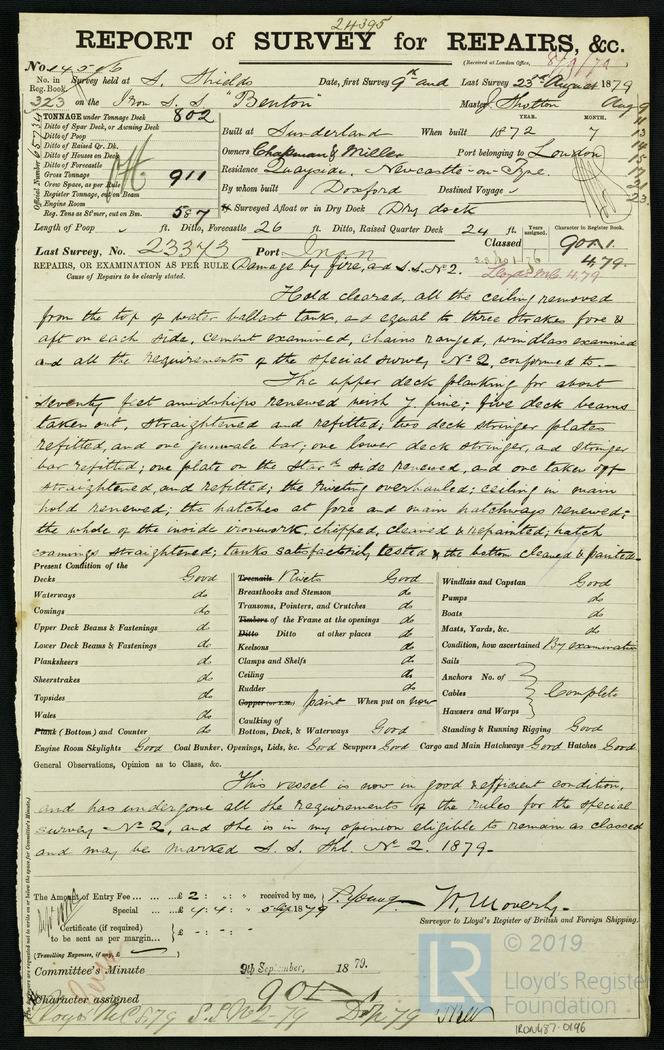 24395
REPORT of SURVEY for REPAIRS, &c.
(Received at London Office, 8/9/79
No. 14506
No. in Reg. Book. Survey held at S. Shields Date, first Survey 9th and Last Survey 23rd August 1879
323 on the Iron S.S "Benton" Master J. Thotton
Aug 9
11
13
14
15
17
21
23
Official Number 65734
TONNAGE under Tonnage Deck 802
Ditto of Spar Deck, or Awning Deck
Ditto of Poop
Ditto of Raised Qr. Dk.
Ditto of Houses on Deck
Ditto of Forecastle
Gross Tonnage 911
Crew Space, as per Rule
Register Tonnage, cut on Beam
Engine Room
Reg. Tons as St'mer, cut on Bm. 587
YEAR. MONTH.
Built at Sunderland When built 1872 7
Owners Chapman & Miller Port belonging to London
Residence Quayside, Newcastle-on-Tyne.
By whom built Doxford Destined Voyage
If Surveyed Afloat or in Dry Dock Dry dock
Length of Poop ft. Ditto, Forecastle 26 ft. Ditto, Raised Quarter Deck 24 ft.
Years assigned. Character in Register Book.
Last Survey, No. 23373 Port Classed 90A.1.
4.79
Lloyds MC 4.79
REPAIRS, OR EXAMINATION AS PER RULE Damage by fire, and S.S. No 2.
Cause of Repairs to be clearly stated.
Hold cleared, all the ceiling removed
from the top of water ballast tanks, and equal to three strakes fore &
aft on each side, cement examined, chains ranged, windlass examined
and all the requirements of the special survey No 2, conformed to.—
The upper deck planking for about
seventy feet amidships renewed with y. pine; five deck beams
taken out, straightened and refitted; two deck stringer plates
refitted, and one gunwale bar; one lower deck stringer, and stringer
bar refitted; one plate on the Starbd side renewed, and one taken off
straightened, and refitted; the riveting overhauled; ceiling in main
hold renewed; the hatches at fore and main hatchways renewed;
the whole of the inside ironwork, chipped, cleaned & repainted; hatch
coamings straightened; tanks satisfactorily tested & the bottom cleaned & painted.
Present Condition of the
Decks Good
Waterways do
Comings do
Upper Deck Beams & Fastenings do
Lower Deck Beams & Fastenings do
Planksheers do
Sheerstrakes do
Topsides do
Wales do
Plank (Bottom) and Counter do
Treenails Rivets Good
Breasthooks and Stemson do
Transoms, Pointers, and Crutches do
Timbers of the Frame at the openings do
Ditto Ditto at other places do
Keelsons do
Clamps and Shelfs do
Ceiling do
Rudder do
Copper (or Y.M.) paint When put on now
Caulking of
Bottom, Deck, & Waterways Good
Windlass and Capstan Good
Pumps do
Boats do
Masts, Yards, &c. do
Condition, how ascertained By examination
Sails
Anchors No. of
Cables Complete
Hawsers and Warps
Standing & Running Rigging Good
Engine Room Skylights Good Coal Bunker, Openings, Lids, &c. Good Scuppers Good Cargo and Main Hatchways Good Hatches Good
General Observations, Opinion as to Class, &c.
This vessel is now in good & efficient condition,
and has undergone all the requirements of the rules for the special
survey No 2, and she is in my opinion eligible to remain as classed
and may be marked S.S. Shl. No 2. 1879.
The Amount of Entry Fee ... ...£ 2 : „ : „ received by me,
Special ... ...£ 4 : 4 : „ Sep 1879
Certificate (if required) £ - : - : -
to be sent as per margin...
(Travelling Expenses, if any, £ )
Surveyor to Lloyd's Register of British and Foreign Shipping.
Committee's Minute 9th September, 1879.
Character assigned 90A 1
Lloyds MC 8.79 S.S No 2-79
© 2019
LR
Lloyd's Register
Foundation
IRON487-0196